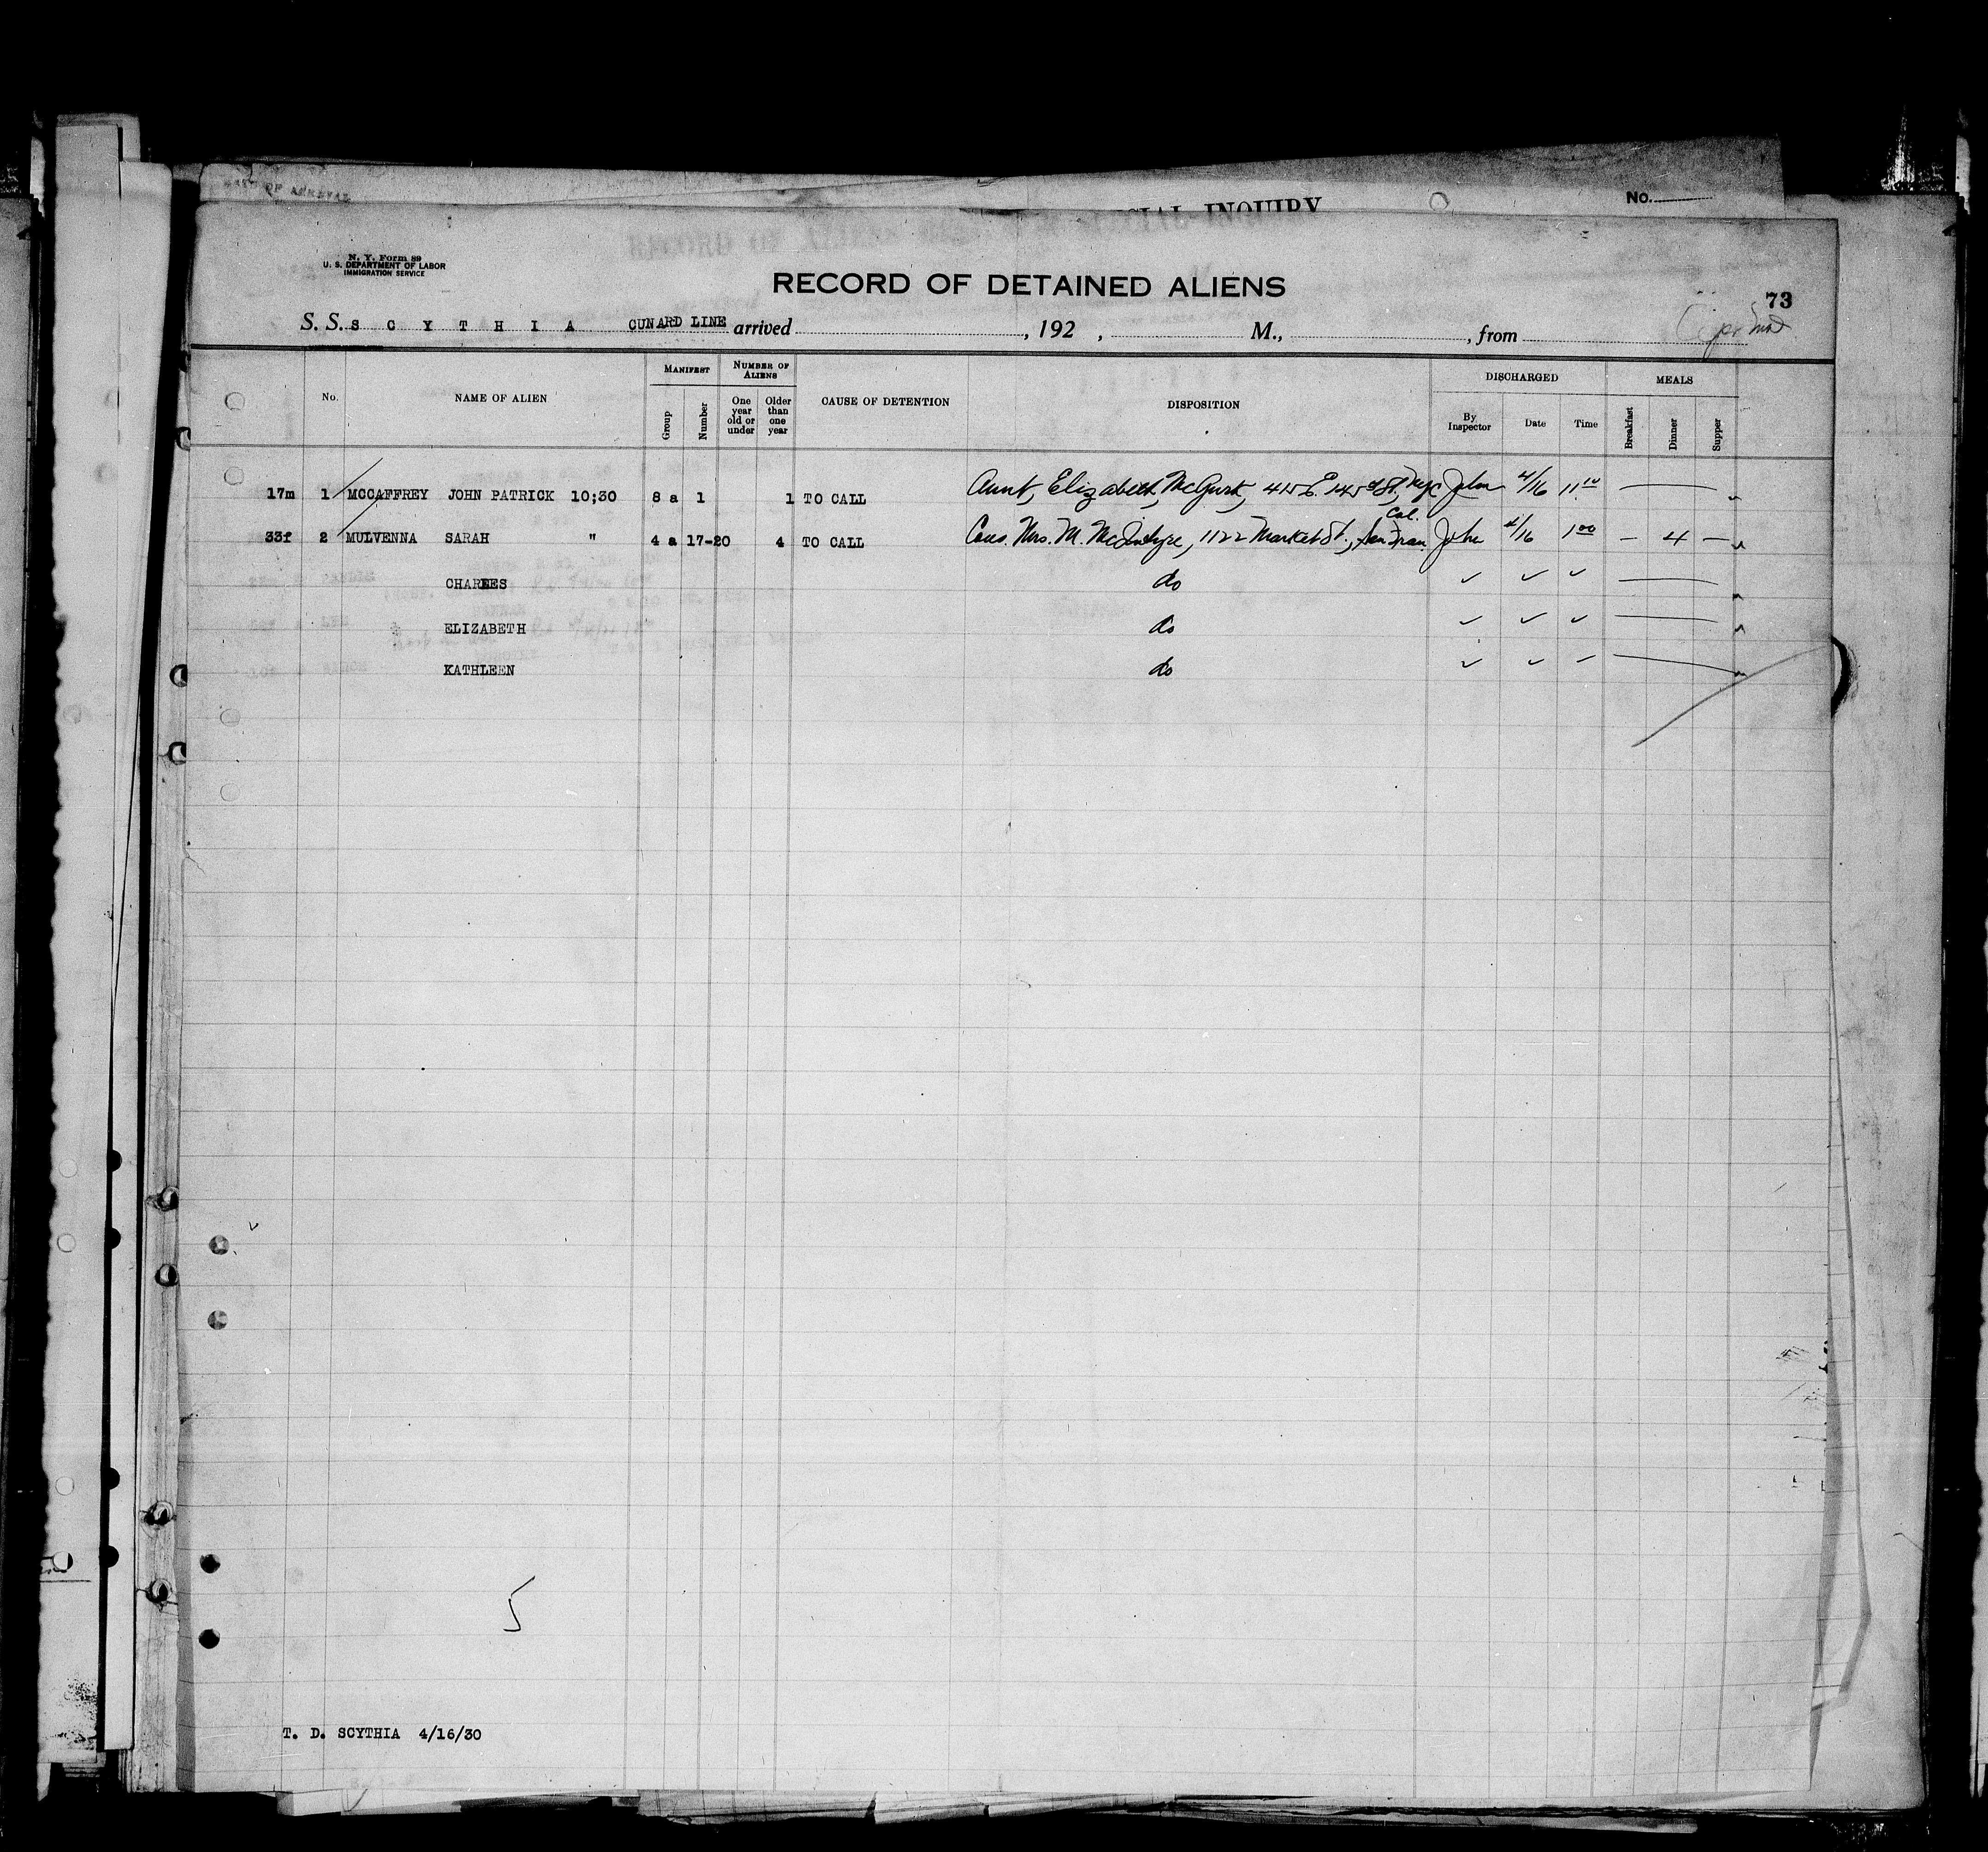 DATE OF ARRIVAL
SPECIAL INQUIRY
No.
N. Y. Form 89
U. S. DEPARTMENT OF LABOR
IMMIGRATION SERVICE
RECORD OF DETAINED ALIENS
73
S. S. S C Y T H I A CUNARD LINE arrived , 192 , M., , from
No. NAME OF ALIEN MANIFEST Group Number NUMBER OF ALIENS One year old or under Older than one year CAUSE OF DETENTION DISPOSITION DISCHARGED By Inspector Date Time MEALS Breakfast Dinner Supper
17m 1 MCCAFFREY JOHN PATRICK 10;30 8 a 1 1 TO CALL Aunt, Elizabeth McGurk, 415 E 145th St, NYC John 4/16 11 10
33f 2 MULVENNA SARAH " 4 a 17-20 4 TO CALL Cous. Mrs. M. McIntyre, 1122 Market St., San Fran. Cal. John 4/16 1 00 — 4 —
CHARLES do ✓ ✓ ✓
ELIZABETH do ✓ ✓ ✓
KATHLEEN do ✓ ✓ ✓
5
T. D. SCYTHIA 4/16/30